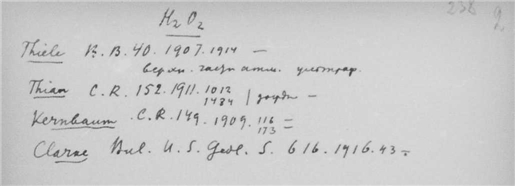 238
H₂O₂
Thiele B. B. 40. 1907. 1914 —
верхн. части атм. ультрафр.
Thian C. R. 152. 1911. 1012
1484 —
Kernbaum C. R. 149. 1909. 116
173 =
Clarke Bul. U. S. Geol. S. 616. 1916. 43 =